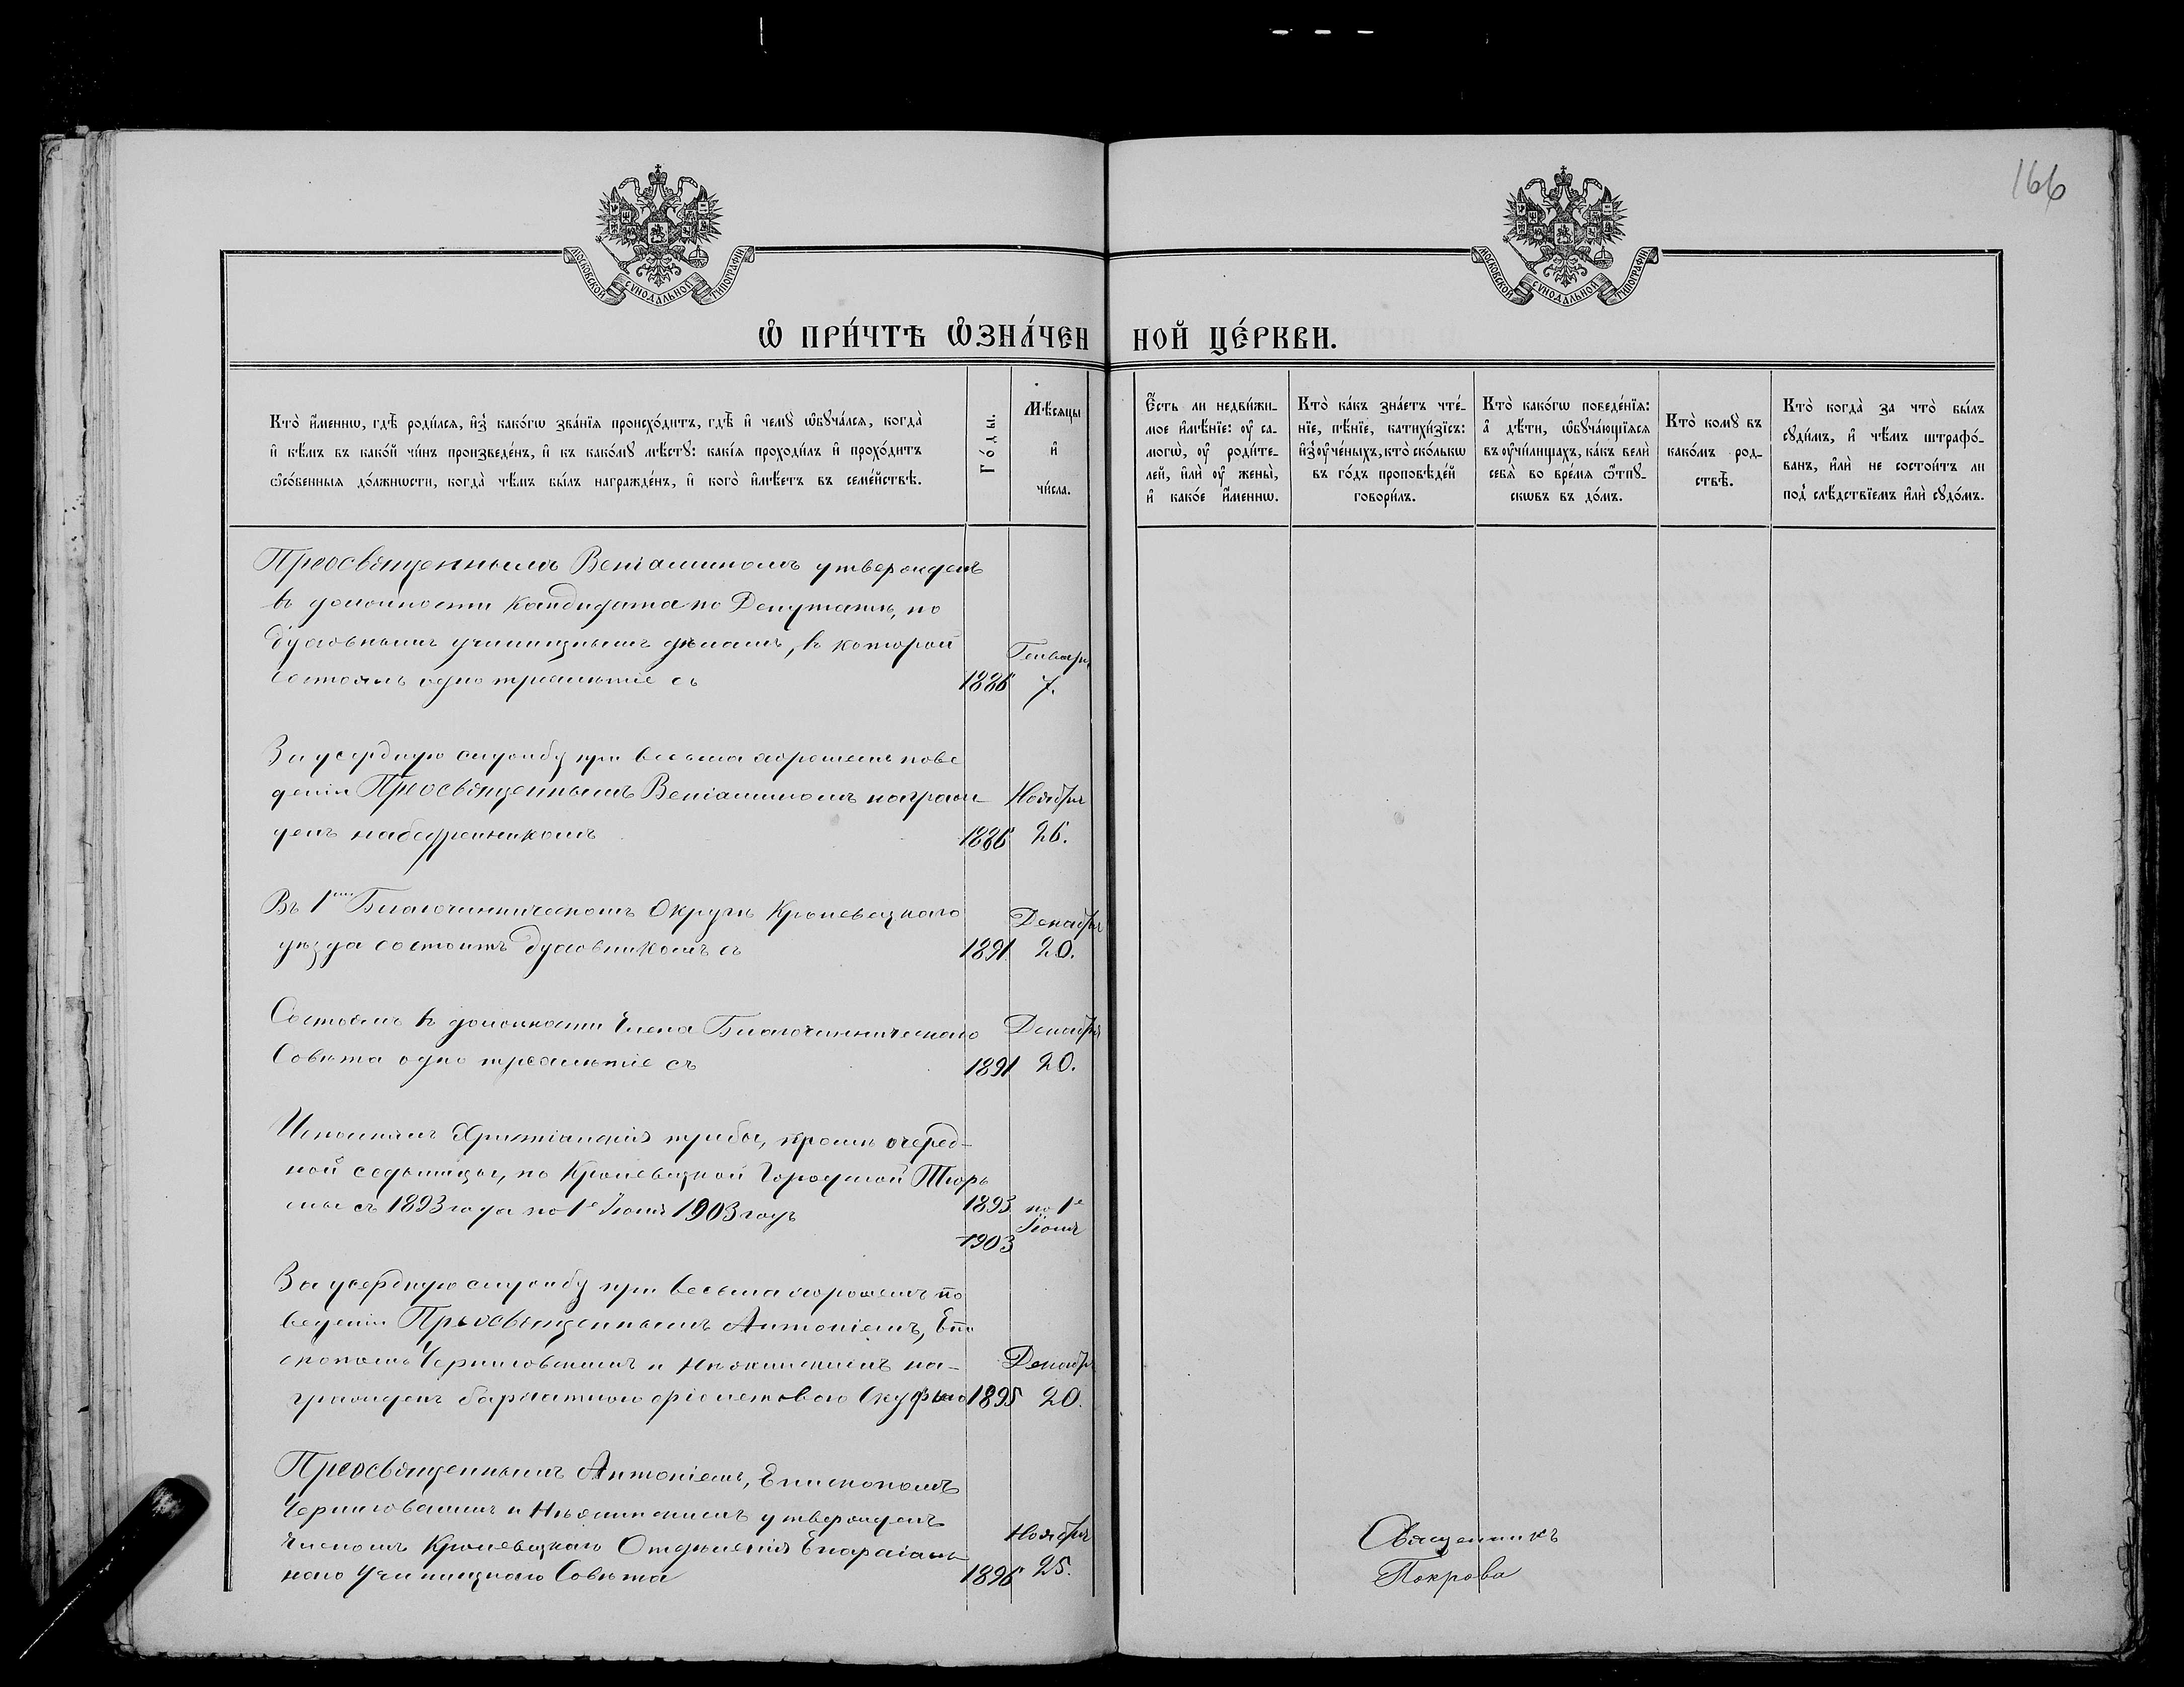 166
МОСКОВСКОЙ СѴНОДАЛЬНОЙ ТИПОГРАФІИ
МОСКОВСКОЙ СѴНОДАЛЬНОЙ ТИПОГРАФІИ
Ѡ҆ ПРИ́ЧТѢ Ѡ҆ЗНА́ЧЕННОЙ ЦЕ́РКВИ.
Кто̀ и҆́меннѡ, гдѣ̀ роди́лсѧ, и҆з̾ како́гѡ зва́нїѧ происхо́дитъ, гдѣ̀ и҆ чемꙋ̀ ѡ҆бꙋча́лсѧ, когда̀
и҆ кѣ́мъ въ како́й чи́нъ произведе́нъ, и҆ къ како́мꙋ мѣ́стꙋ: какі́ѧ проходи́лъ и҆ прохо́дитъ
ѡ҆со́бенныѧ до́лжнѡсти, когда̀ чѣ́мъ бы́лъ награжде́нъ, и҆ кого̀ и҆мѣ́етъ въ семе́йствѣ.
Го́ды.
Мѣ́сѧцы
и҆
чи́сла.
Є҆́сть ли недви́жи-
мое и҆мѣ́нїе: ᲂу҆ са-
могѡ̀, ᲂу҆ роди́те-
лей, и҆лѝ ᲂу҆ жены̀,
и҆ како́е и҆́меннѡ.
Кто̀ ка́къ зна́етъ чте́-
нїе, пѣ́нїе, катихи́зїсъ:
и҆з̾ ᲂу҆че́ныхъ, кто̀ ско́лькѡ
въ го́дъ проповѣ́дей
говори́лъ.
Кто̀ како́гѡ поведе́нїѧ:
а҆ дѣ́ти, ѡ҆бꙋча́ющїѧсѧ
въ ᲂу҆чи́лищахъ, ка́къ велѝ
себѧ̀ во вре́мѧ ѿпꙋ-
скѡвъ въ до́мъ.
Кто̀ комꙋ̀ въ
како́мъ род-
ствѣ̀.
Кто̀ когда̀ за что̀ бы́лъ
сꙋди́мъ, и҆ чѣ́мъ штрафо́-
ванъ, и҆лѝ не состои́тъ ли
под̾ слѣ́дствїемъ и҆лѝ сꙋдо́мъ.
Преосвященнымъ Веніаминомъ утвержденъ
въ должности Кандидата по Депутатѣ, по
духовнымъ училищнымъ дѣламъ, въ которой
состоялъ одно трехлѣтіе съ 1886 Генваря 7.
За усердную службу при весьма хорошемъ пове
деніи Преосвященнымъ Веніаминомъ награж-
денъ набедренникомъ 1886 Ноября 26.
Въ 1мъ Благочинническомъ Округѣ Кролевецкаго
уѣзда состоитъ духовникомъ съ 1891 Декабря 20.
Состоялъ въ должности Члена Благочинническаго
Совѣта одно трехлѣтіе съ 1891 Декабря 20.
Исполнялъ Христіанскія требы, кромѣ очеред-
ной седьмицы, по Кролевецкой Городской Тюрь
мѣ съ 1893 года по 1е Іюня 1903 годъ 1893 по 1е
1903 Іюня
За усердную службу при весьма хорошемъ по
веденіи Преосвященнымъ Антоніемъ, Епи
скопомъ Черниговскимъ и Нѣжинскимъ на-
гражденъ бархатною фіолетовою Скуфьею 1895 Декабря 20.
Преосвященнымъ Антоніемъ, Епископомъ
Черниговскимъ и Нѣжинскимъ утвержденъ
Членомъ Кролевецкаго Отдѣленія Епархіаль-
наго Училищнаго Совѣта 1896 Ноября 25.
Священникъ
Покрова